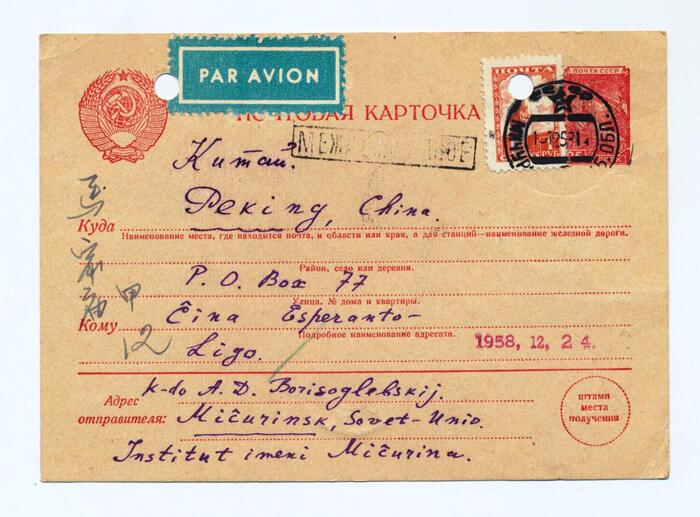 PAR AVION
КАРТОЧКА
ПОЧТА
ПОЧТА СССР
Китай.
Peking, China.
Куда
Наименование места, где находится почта, и области или края, а для станций—наименование железной дороги.
Район, село или деревня.
P. O. Box 77
Улица, № дома и квартиры.
Ĉina Esperanto-
Кому
Подробное наименование адресата.
12
Ligo.
1958, 12, 24.
k-do A. D. Borisoglebskij.
Адрес
отправителя:
Miĉurinsk, Sovet-Unio.
Institut imeni Miĉurina.
штамп
места
получения